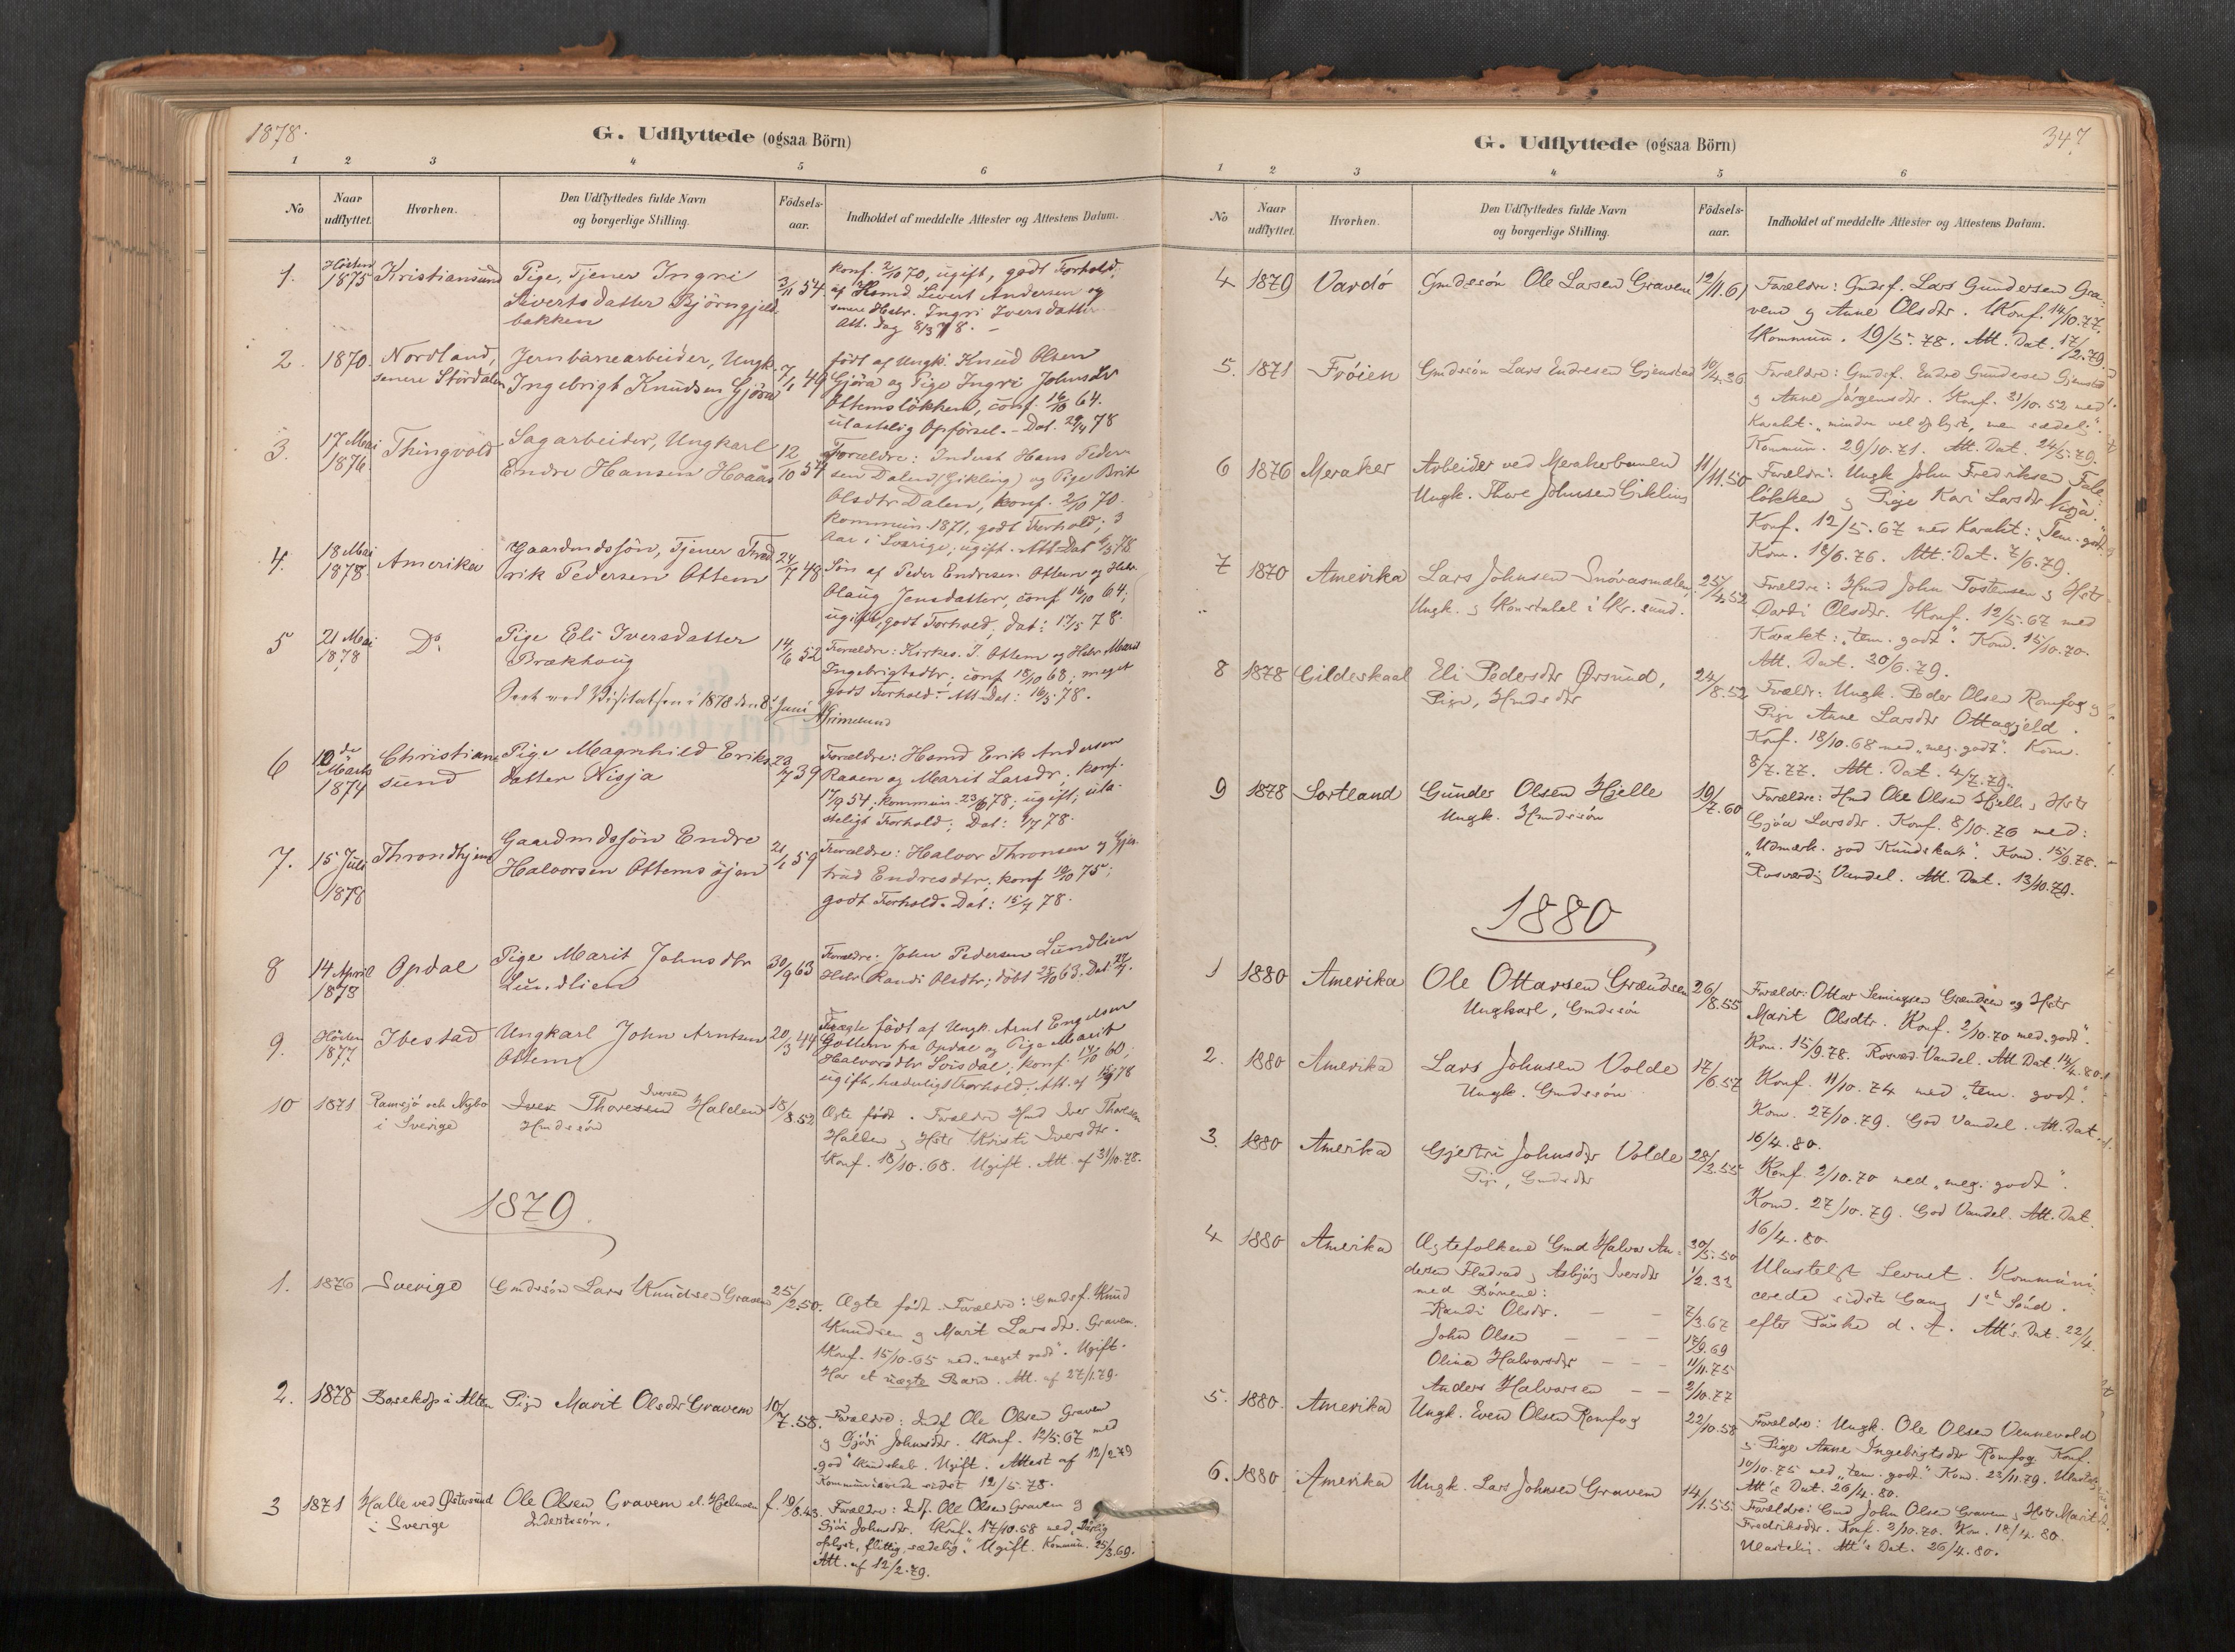 1878.
G. Udflyttede (ogsaa Börn)
1 2 3 4 5 6
No
Naar udflyttet.
Hvorhen.
Den Udflyttedes fulde Navn
og borgerlige Stilling.
Födsels-
aar.
Indholdet af meddelte Attester og Attestens Datum.
1. Hösten 1875 Kristiansund
Pige, Tjener Ingri
Sivertsdatter Björngjeld-
bakken
2/11 54.
konf. 2/10 70, ugift, godt Forhold,
af Hsmd. Sivert Andersen og
senere Hstr. Ingri Iversdatter
Att. dag 8/3 78. –
2. 1870. Nordland,
senere Stördalen
Jernbanearbeider, Ungk.
Ingebrigt Knudsen Gjöra
7/1 49
födt af Ungk. Knud Olsen
Gjöra og Pige Ingri Johnsdtr
Ottemslökken, conf. 16/10 64.
ulastelig Opförsel. – Dat. 29/4 78
3. 17 Mai 1876. Thingvold
Sagarbeider, Ungkarl
Endre Hansen Hoaas
12/10 54
Forældre: Inderst Hans Peder-
sen Dalen (Gikling) og Pige Brit
Olsdtr Dalen, konf. 2/10 70.
kommun. 1871, godt Forhold; 3
Aar i Sverige, ugift. Att. Dat 6/5 78
4. 18 Mai 1878. Amerika
Gaardmdssön, Tjener Fred-
rik Pedersen Ottem
24/7 48
Sön af Peder Endresen Ottem og Hstr.
Olaug Jensdatter, conf 16/10 64;
ugift, godt Forhold; dat: 17/5 78.
5 21 Mai 1878 Do.
Pige Eli Iversdatter
Brækhaug
14/6 52
Forældre: Kirkes. I. Ottem og Hstr Marit
Ingebrigtsdtr; conf 18/10 68; meget
godt Forhold – Att. Dat: 16/5 78.
Seet ved Visitatsen i 1878 den 8. Juni
Grimelund
6 10de Marts 1874 Christian-
sund
Pige Magnhild Eriks-
datter Nisja
23/7 39
Forældre: Hsmd Erik Andersen
Raaen og Marit Larsdr. konf.
17/9 54; kommun. 23/6 78; ugift, ula-
steligt Forhold; Dat: 1/7 78.
7. 15 Juli 1878 Throndhjem
Gaardmdssön Endre
Halvorsen Ottemsöjen
21/1 59
Forældre: Halvor Thronsen og Gjer-
trud Endresdtr; konf 10/10 75;
godt Forhold. Dat: 15/7 78.
8 14 April 1878 Opdal
Pige Marit Johnsdtr
Lundlien
30/9 63
Forældre: John Pedersen Lundlien
Hstr Randi Olsdtr; döbt 25/10 63. Dat:
9. Hösten 1877 Ibestad
Ungkarl John Arntsen
Ottem
20/3 44
Uægte födt af Ungk. Arnt Engelsen
Gottem fra Opdal og Pige Marit
Halvorsdtr Loisdal; konf. 17/10 60;
ugift, hæderligt Forhold; Att. af 78
10 1871 Ramsjö och Nybo
i Sverige
Iver Thoresen Iversen Halden
Hmdssön
18/8.52
Ægte födt. Forældre Hmd Iver Thoresen
Hallen og Hstr Kristi Iversdtr.
Konf. 18/10.68. Ugift. Att. af 31/10.78.
1879
1. 1876 Sverige
Gmdssön Lars Knudsen Graven
25/2.50.
Ægte födt. Forældre: Gmdsf. Knud
Knudsen og Marit Larsdtr. Graven.
Konf. 15/10.65 med „meget godt". Ugift.
Har et uægte Barn. Att. af 27/1.79.
2. 1878 Bosekop i Alten
Pige Marit Olsdtr Gravem
10/7.58.
Forældre: Indf Ole Olsen Gravem
og Gjöri Johnsdtr. Konf. 12/5.67 med
„god" Kundskab. Ugift. Attest af 12/2.79
Kommunicerede sidst 12/5.78.
3 1871 Halle ved Östersund
i Sverige
Ole Olsen Gravem el. Hjelmoen
Inderstssön.
f. 19/8.43.
Forældre: Indf. Ole Olsen Gravem og
Gjöri Johnsdtr. Konf. 17/10.58 med „Dårlig
oplyst, flittig, sædelig." Ugift. Kommun. 25/3.69.
Att. af 12/2.79.
347
G. Udflyttede (ogsaa Börn)
1 2 3 4 5 6
No
Naar udflyttet.
Hvorhen.
Den Udflyttedes fulde Navn
og borgerlige Stilling.
Födsels-
aar.
Indholdet af meddelte Attester og Attestens Datum.
4 1879 Vardö
Gmdssön Ole Larsen Gravem
12/11.61
Forældre: Gmdsf. Lars Gundersen Gra-
vem og Anne Olsdtr. Konf. 14/10.77.
Kommun. 19/5.78. Att. Dat. 17/2.79.
5. 1871 Fröien
Gmdssön Lars Endresen Gjenstad
10/4.36
Forældre: Gmdsf. Endre Gundersen Gjenstad
og Anne Jörgensdtr. Konf. 31/10.52 med
Karakt. „mindre vel oplyst, men sædelig".
Kommun. 29/10.71. Att. Dat. 24/5.79.
6 1876 Meraker
Arbeider ved Merakerbanen
Ungk. Thore Johnsen Gikling
11/11.50
Forældre: Ungk John Fredriksen Fale-
lökken og Pige Kari Larsdtr Nisja.
Konf. 12/5.67 med Karakt: „Tem. godt."
Kom. 18/6.76. Att. Dat. 7/6.79.
7 1870 Amerika
Lars Johnsen Snövasmælen,
Ungk. og Konstabel i Kr.sund.
25/4.52
Forældre: Hmd John Tostensen og Hstr
Dordi Olsdtr. Konf. 12/5.67 med
Karakt: „tem. godt". Kom. 15/10.70.
Att. Dat. 30/6.79.
8 1878 Gildeskaal
Eli Pedersdtr Ørsund,
Pige, Hmdsdtr
24/8.52
Forældr: Ungk. Peder Olsen Romfog og
Pige Anne Larsdtr Ottagjeld.
Konf. 18/10.68 med „meg. godt". Kom.
8/7.77. Att. Dat. 4/7.79.
9 1878 Sortland
Gunder Olsen Hjelle
Ungk. Hmdssön
19/7.60
Forældre: Hmd Ole Olsen Hjelle og Hstr
Gjöa Larsdtr. Konf. 8/10.76 med:
„Udmærk. god Kundskab". Kom. 15/9.78.
Rosværdig Vandel. Att. Dat. 13/10.79.
1880
1 1880 Amerika
Ole Ottarsen Grændsen
Ungkarl, Gmdssön
26/8.55
Forældr: Ottar Semingsen Grændsen og Hstr
Marit Olsdtr. Konf. 2/10.70 med „godt".
Kom. 15/9.78. Rosværd. Vandel. Att. Dat. 14/4.80.
2. 1880 Amerika
Lars Johnsen Volde
Ungk. Gmdssön
17/6.57
Konf. 11/10.74 med „tem. godt".
Kom. 27/10.79. God Vandel. Att. Dat.
16/4.80.
3. 1880 Amerika
Gjertru Johnsdtr Volde
Pige, Gmdsdtr
28/3.55
Konf. 2/10.70 med „meg. godt".
Kom. 27/10.79. God Vandel. Att. Dat.
16/4.80.
4 1880 Amerika
Ægtefolkene Gmd Halvor An-
dersen Fladvad og Asbjörg Iversdtr
med Börnene:
30/5.50
1/2.33
Randi Olsdr. – – 7/3.67
John Olsen – – – 17/9.69
Olina Halvorsdtr – – – 11/11.75
Anders Halvorsen – – 2/10.77
Ulasteligt Levnet. Kommuni-
cerede sidste Gang 1ste Sönd.
efter Påske d. A. Att's Dat. 22/4.
5. 1880. Amerika
Ungk. Even Olsen Romfog
22/10.58
Forældre: Ungk. Ole Olsen Vennevold
og Pige Anne Ingebrigtsdtr Romfog. Konf.
10/10.75 med „tem. godt". Kom. 23/11.79. Ulastelig
Att's Dat. 26/4.80.
6. 1880 Amerika
Ungk. Lars Johnsen Gravem
14/1.55
Forældre: Gmd John Olsen Gravem og Hstr Marit
Fredriksdtr. Konf. 2/10.70. Kom. 18/4.80.
Ulastelig. Att's Dat. 26/4.80.